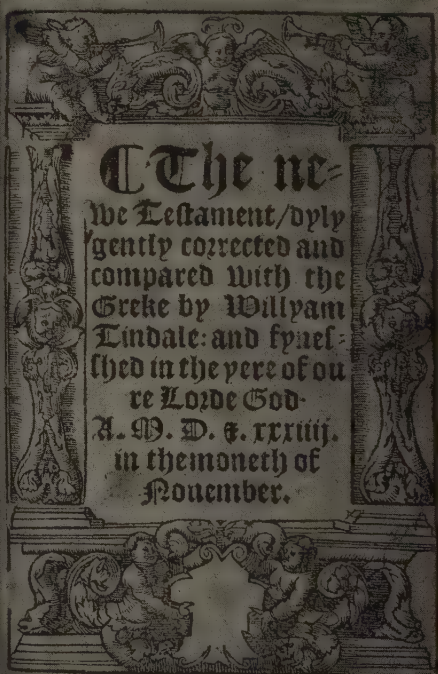 ¶ The ne⸗
we Testament/dyly
gently corrected and
compared with the
Greke by Willyam
Tindale: and fynes⸗
shed in the yere of ou
re Lorde God.
A. M. D. & xxxiiij.
in themoneth of
Nouember.